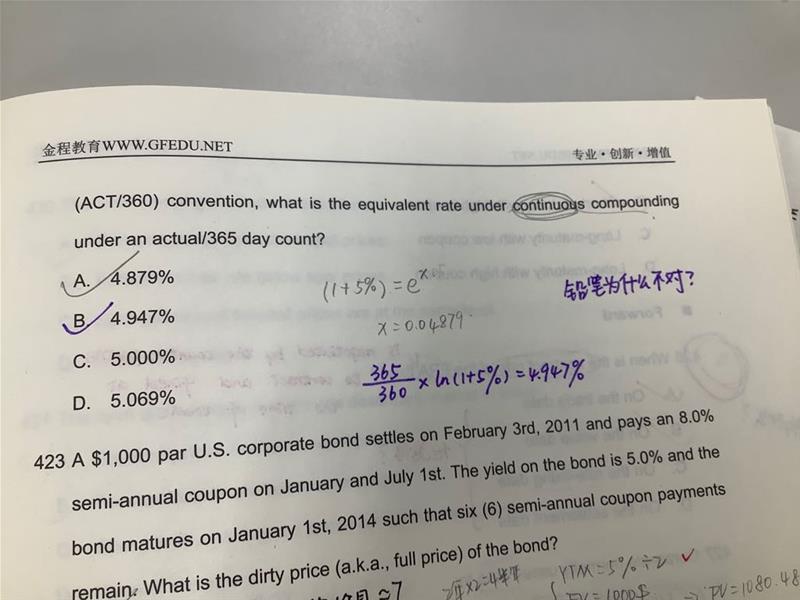 金程教育WWW.GFEDU.NET
专业·创新·增值
(ACT/360) convention, what is the equivalent rate under continuous compounding
under an actual/365 day count?
A. 4.879%
B. 4.947%
C. 5.000%
D. 5.069%
(1+5%)=e^x
x=0.04879
铅笔为什么不对?
365/360 × ln(1+5%)=4.947%
423 A $1,000 par U.S. corporate bond settles on February 3rd, 2011 and pays an 8.0%
semi-annual coupon on January and July 1st. The yield on the bond is 5.0% and the
bond matures on January 1st, 2014 such that six (6) semi-annual coupon payments
remain. What is the dirty price (a.k.a., full price) of the bond?
YTM=5%÷2
FV=1000$
PV=1080.48